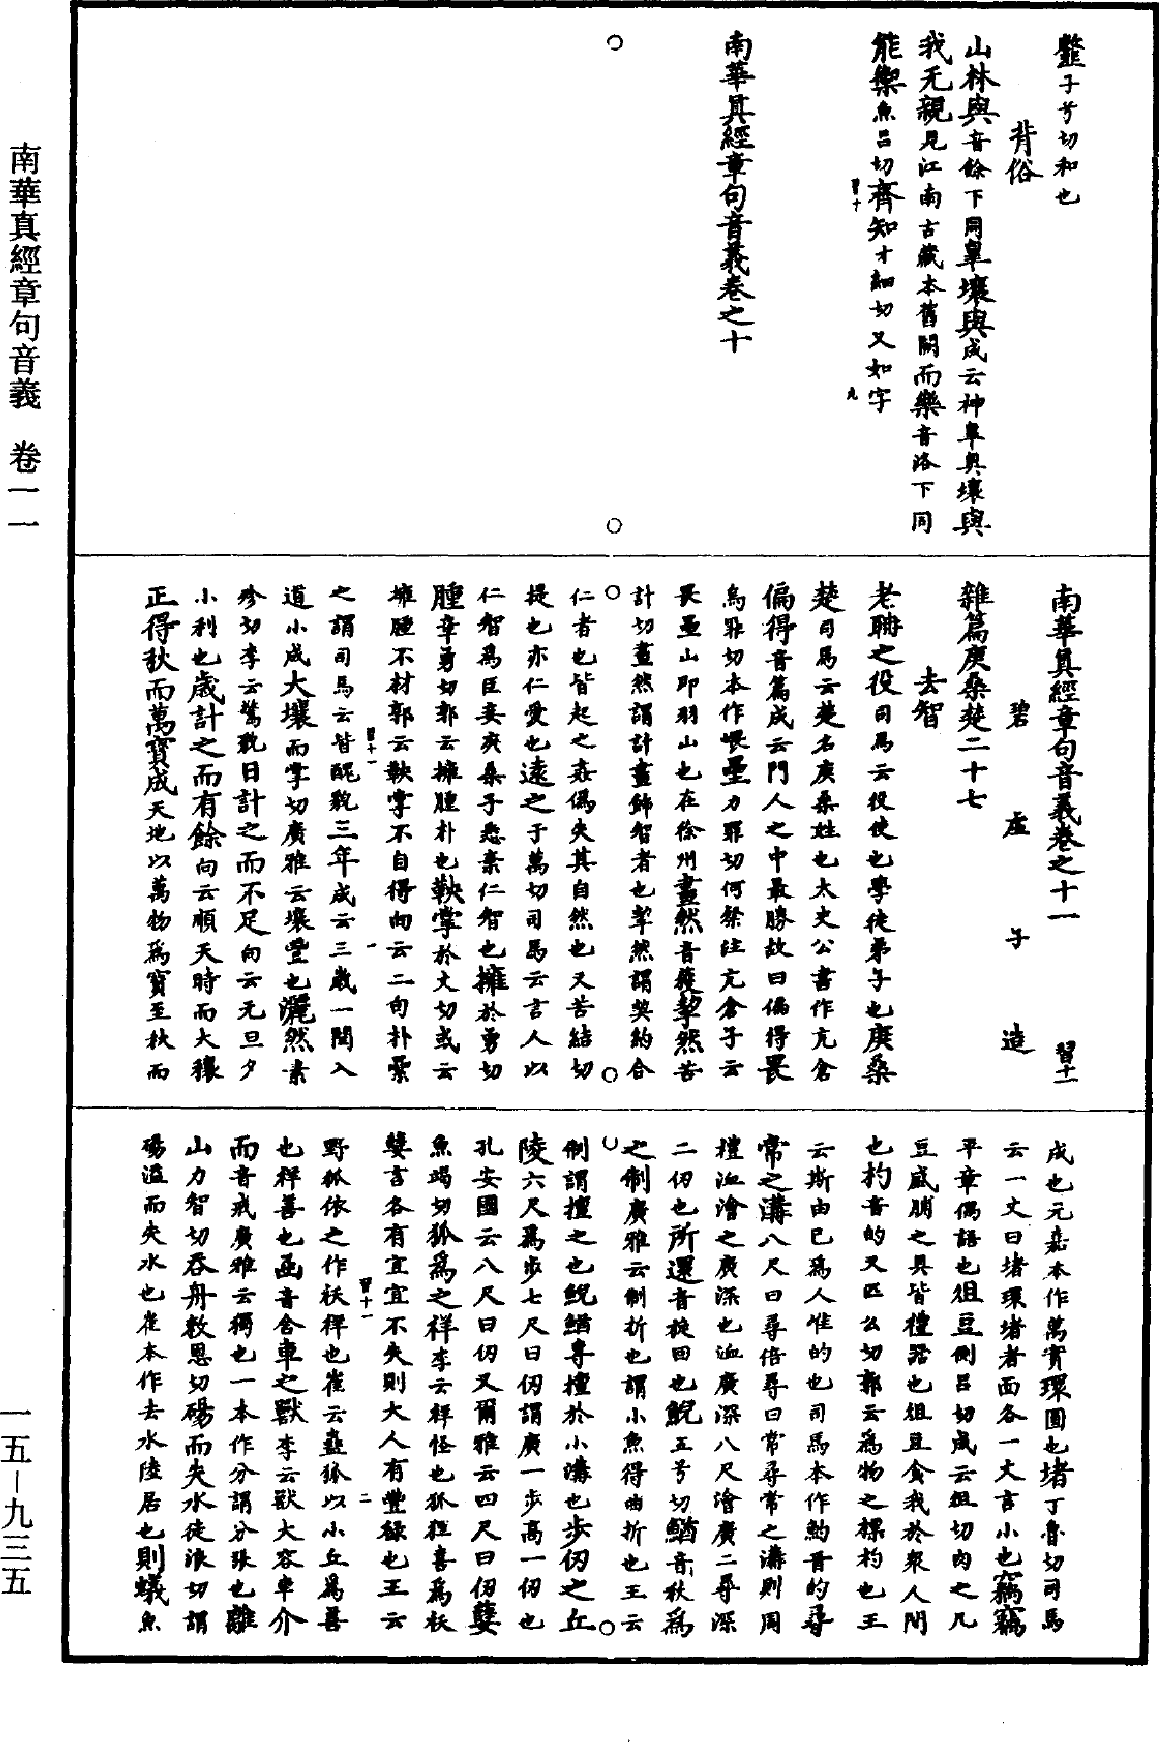 南華真經章句音義　卷一一
一五－九三五
韲子兮切和也
背俗
山林與音餘下同皐壤與成云神皐奥壤與
我无親見江南古藏本舊闕而樂音洛下同
能禦魚呂切齊知才細切又如字
習十
九
南華真經章句音義卷之十
南華真經章句音義卷之十一
習十一
碧虛子造
雜篇庚桑楚二十七
去智
老聃之役司馬云役使也學徒弟子也庚桑
楚司馬云楚名庚桑姓也太史公書作亢倉
偏得音篇成云門人之中最勝故曰偏得畏
烏罪切本作喂壘力罪切何粲註亢倉子云
畏壘山即羽山也在徐州畫然音獲挈然苦
計切畫然謂計畫飾智者也挈然謂契約合
仁者也皆起之姦偽失其自然也又苦結切
提也亦仁愛也遠之于萬切司馬云言人以
仁智爲臣妾庚桑子悉棄仁智也擁於勇切
腫章勇切郭云擁腫朴也鞅掌於丈切或云
擁腫不材郭云鞅掌不自得向云二句朴纍
習十一
一
之謂司馬云皆醜貌三年成云三歲一閏入
道小成大壤而掌切廣雅云壤豐也灑然素
殄切李云驚貌日計之而不足向云元旦夕
小利也歲計之而有餘向云順天時而大穰
正得秋而萬寶成天地以萬物爲寶至秋而
成也元嘉本作萬實環圓也堵丁魯切司馬
云一丈曰堵環堵者面各一丈言小也竊竊
平章偶語也俎豆側呂切成云俎切肉之几
豆盛脯之具皆禮器也俎豆食我於衆人間
也杓音的又匹么切郭云爲物之標杓也王
云斯由已爲人准的也司馬本作魡音的尋
常之溝八尺曰尋倍尋曰常尋常之溝則周
禮洫澮之廣深也洫廣深八尺澮廣二尋深
二仞也所還音旋回也鯢五兮切鰌音秋爲
之制廣雅云制折也謂小魚得曲折也王云
制謂擅之也鯢鰌專擅於小溝也步仞之丘
陵六尺爲步七尺曰仞謂廣一步高一仞也
孔安國云八尺曰仞又爾雅云四尺曰仞㜸
魚竭切狐爲之祥李云祥怪也狐狸喜爲祅
㜸言各有宜宜不失則大人有豐祿也王云
習十一
二
野狐依之作祅祥也崔云蠱狐以小丘爲善
也祥善也函音含車之獸李云獸大容車介
而音戒廣雅云獨也一本作分謂分張也離
山力智切吞舟敕恩切碭而失水徒浪切謂
碭溢而失水也崔本作去水陸居也則蟻魚